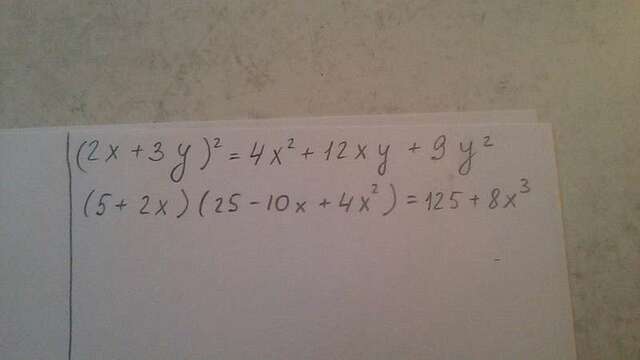 (2x + 3y)² = 4x² + 12xy + 9y²
(5 + 2x)(25 - 10x + 4x²) = 125 + 8x³